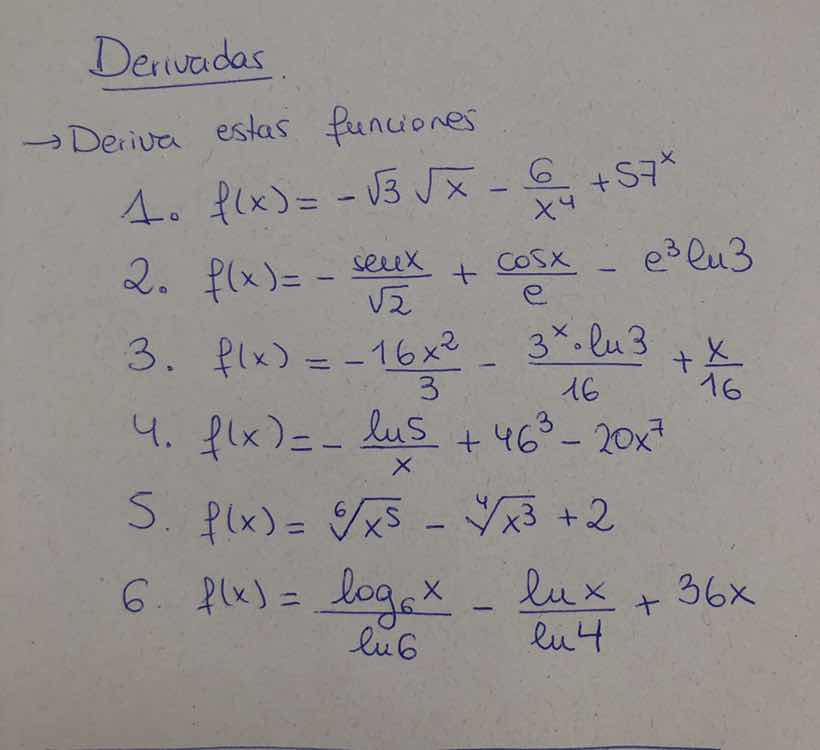 Derivadas.
→ Deriva estas funciones
1. f(x) = -√3 √x - 6/x⁴ + 57ˣ
2. f(x) = - senx/√2 + cosx/e - e³ ln3
3. f(x) = -16x²/3 - 3ˣ·ln3/16 + x/16
4. f(x) = - ln5/x + 46³ - 20x⁷
5. f(x) = ⁶√x⁵ - ⁴√x³ + 2
6. f(x) = log₆x/ln6 - lnx/ln4 + 36x